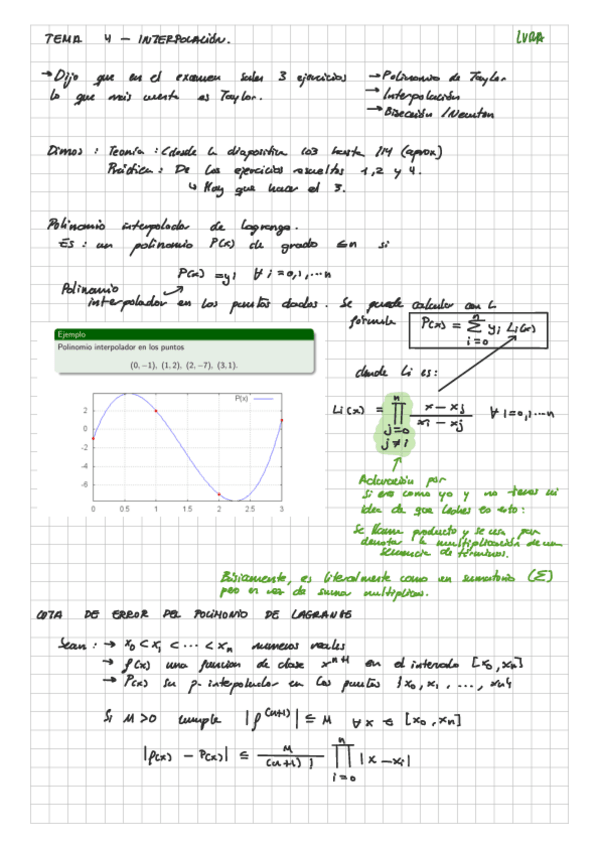 TEMA 4 — INTERPOLACIÓN. LVRA
→ Dijo que en el examen salen 3 ejercicios → Polinomio de Taylor
lo que más cuenta es Taylor. → Interpolación
→ Bisección /Newton
Dimos : Teoría : (desde la diapositiva 103 hasta 114 (aprox)
Práctica : De los ejercicios resueltos 1,2 y 4.
↳ Hay que hacer el 3.
Polinomio interpolador de Lagrange.
Es : un polinomio P(x) de grado ≤n si
P(xi) = yi ∀ i = 0,1,···n
Polinomio
interpolador en los puntos dados. Se puede calcular con la
fórmula P(x) = ∑ⁿᵢ₌₀ yi Li(x)
Ejemplo
Polinomio interpolador en los puntos
(0, −1), (1, 2), (2, −7), (3, 1).
donde Li es:
P(x)
2
0
-2
-4
-6
0 0.5 1 1.5 2 2.5 3
Li(x) = ∏ⁿ j=0 j≠i x − xj / xi − xj ∀ i=0,1···n
Aclaración por
si eres como yo y no tenías ni
idea de que leches es esto:
Se llama producto y se usa para
denotar la multiplicación de una
secuencia de términos.
Básicamente, es literalmente como un sumatorio (Σ)
pero en vez de sumar multiplicas.
COTA DE ERROR DEL POLINOMIO DE LAGRANGE
Sean : → x₀ < x₁ < ··· < xn números reales
→ f(x) una función de clase xⁿ⁺¹ en el intervalo [x₀, xn]
→ P(x) su p. interpolador en los puntos {x₀, x₁, ..., xn}
Si M>0 cumple |f⁽ⁿ⁺¹⁾| ≤ M ∀x ∈ [x₀, xn]
|f(x) − P(x)| ≤ M / (n+1)! ∏ⁿ i=0 |x − xi|